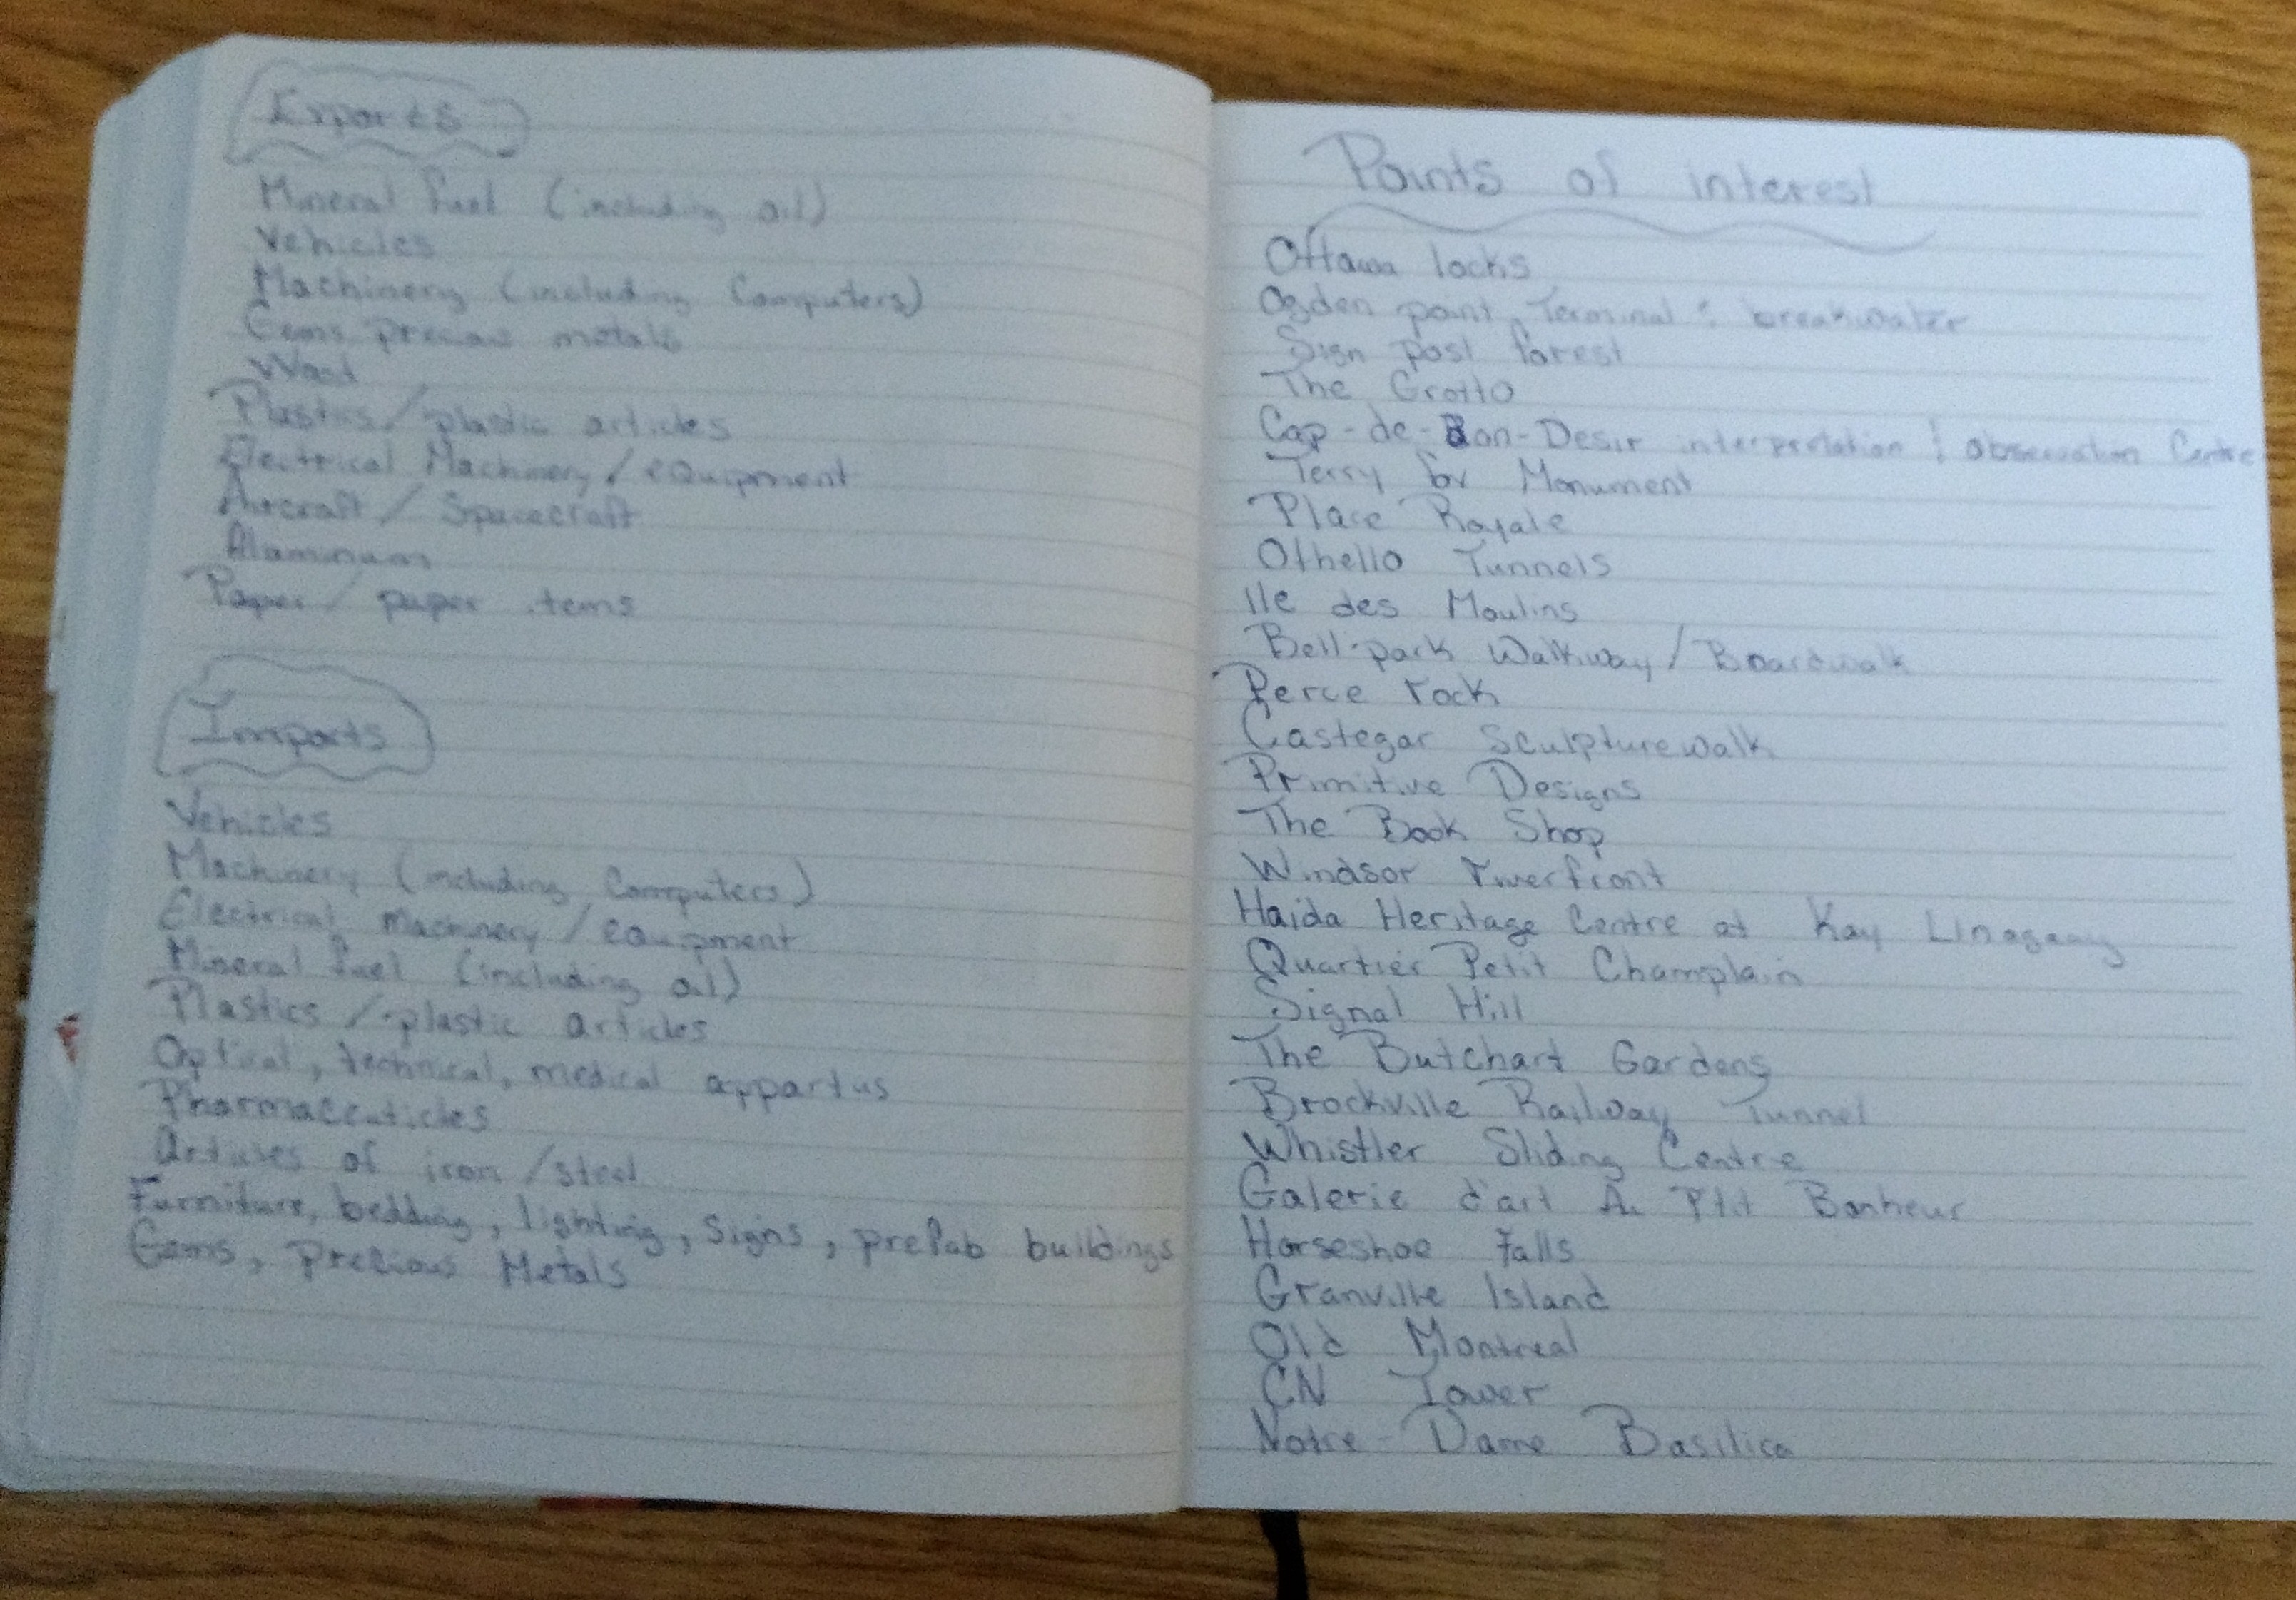 Exports
Mineral fuel (including oil)
Vehicles
Machinery (including Computers)
Gems, precious metals
Wood
Plastics/plastic articles
Electrical Machinery/equipment
Aircraft/Spacecraft
Aluminum
Paper/paper items
Imports
Vehicles
Machinery (including Computers)
Electrical machinery/equipment
Mineral fuel (including oil)
Plastics/plastic articles
Optical, technical, medical appartus
Pharmaceuticles
Articles of iron/steel
Furniture, bedding, lighting, signs, prefab buildings
Gems, precious Metals
Points of interest
Ottawa locks
Ogden point, Terminal & breakwater
Sign post forest
The Grotto
Cap-de-Bon-Desir interpretation & observation Centre
Terry fox Monument
Place Royale
Othello Tunnels
Ile des Moulins
Bell park Walkway/Boardwalk
Perce rock
Castegar Sculpturewalk
Primitive Designs
The Book Shop
Windsor riverfront
Haida Heritage Centre at Kay
Quartier Petit Champlain
Signal Hill
The Butchart Gardens
Brockville Railway Tunnel
Whistler Sliding Centre
Galerie d'art Au P'tit Bonheur
Horseshoe falls
Granville Island
Old Montreal
CN Tower
Notre-Dame Basilica